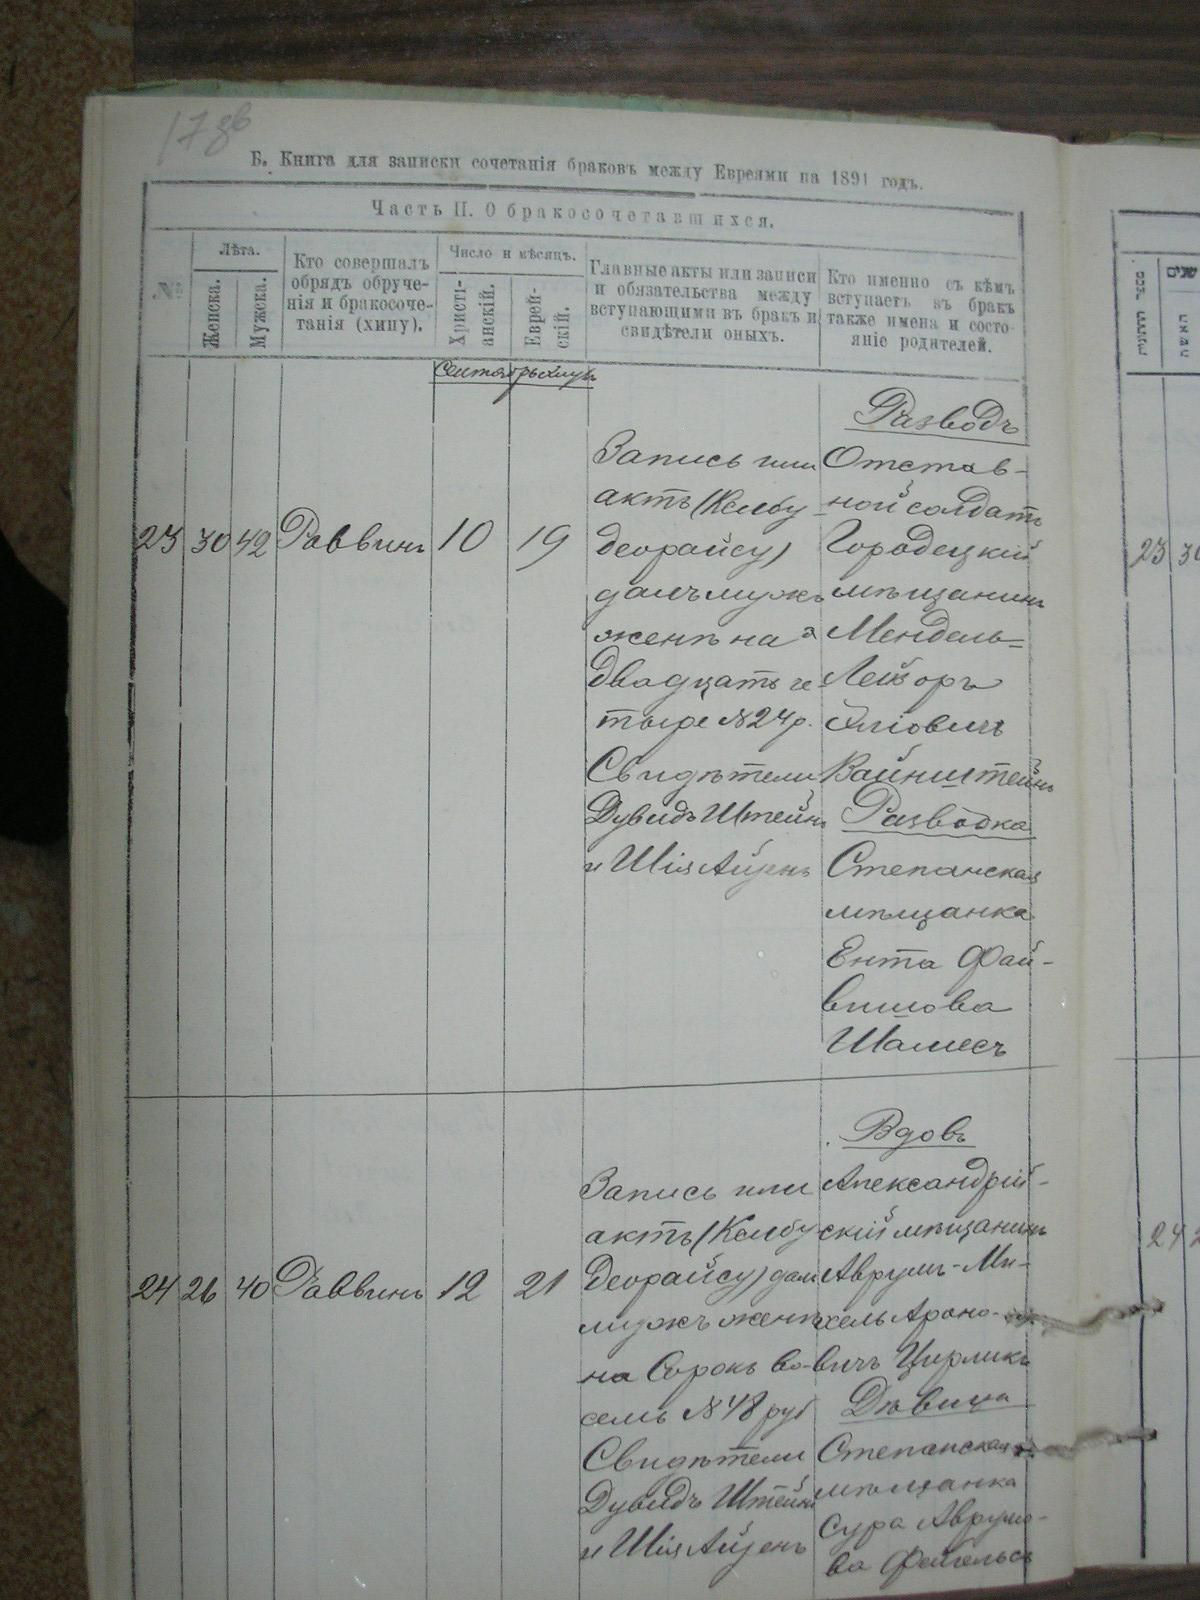 178б
Б. Книга для записки сочетанія браковъ между Евреями на 1891 годъ.
Часть II. О бракосочетавшихся.
№
Лѣта.
Женска.
Мужска.
Кто совершалъ
обрядъ обруче-
нія и бракосоче-
танія (хипу).
Число и мѣсяцъ.
Христі-
анскій.
Еврей-
скій.
Главные акты или записи
и обязательства между
вступающими въ бракъ и
свидѣтели оныхъ.
Кто именно съ кѣмъ
вступаетъ въ бракъ
также имена и состо-
яніе родителей.
Сентябрь
23 30 42 Раввинъ 10 19
Запись или
актъ (Ксибу
деорайсу)
далъ мужъ
женѣ на
двадцать че-
тыре №24 р.
Свидѣтели
Дувидъ Штейнъ
и Шія Айзенъ
Разводъ
Отстав-
ной солдатъ
Городецкій
мѣщанинъ
Мендель-
Лейзоръ
Эліовичъ
Вайнштейнъ
Разводка
Степанская
мѣщанка
Ента Фай-
вишова
Шамесъ
24 26 40 Раввинъ 12 21
Запись или
актъ (Ксибу
деорайсу) далъ
мужъ женѣ
на Сорокъ во-
семь №48 руб
Свидѣтели
Дувидъ Штейнъ
и Шія Айзенъ
Вдовъ
Александрій-
скій мѣщанинъ
Аврумъ-Ми-
хель Ароно-
вичъ Цирликъ
Дѣвица
Степанская
мѣщанка
Сура Аврумо-
ва
23
24